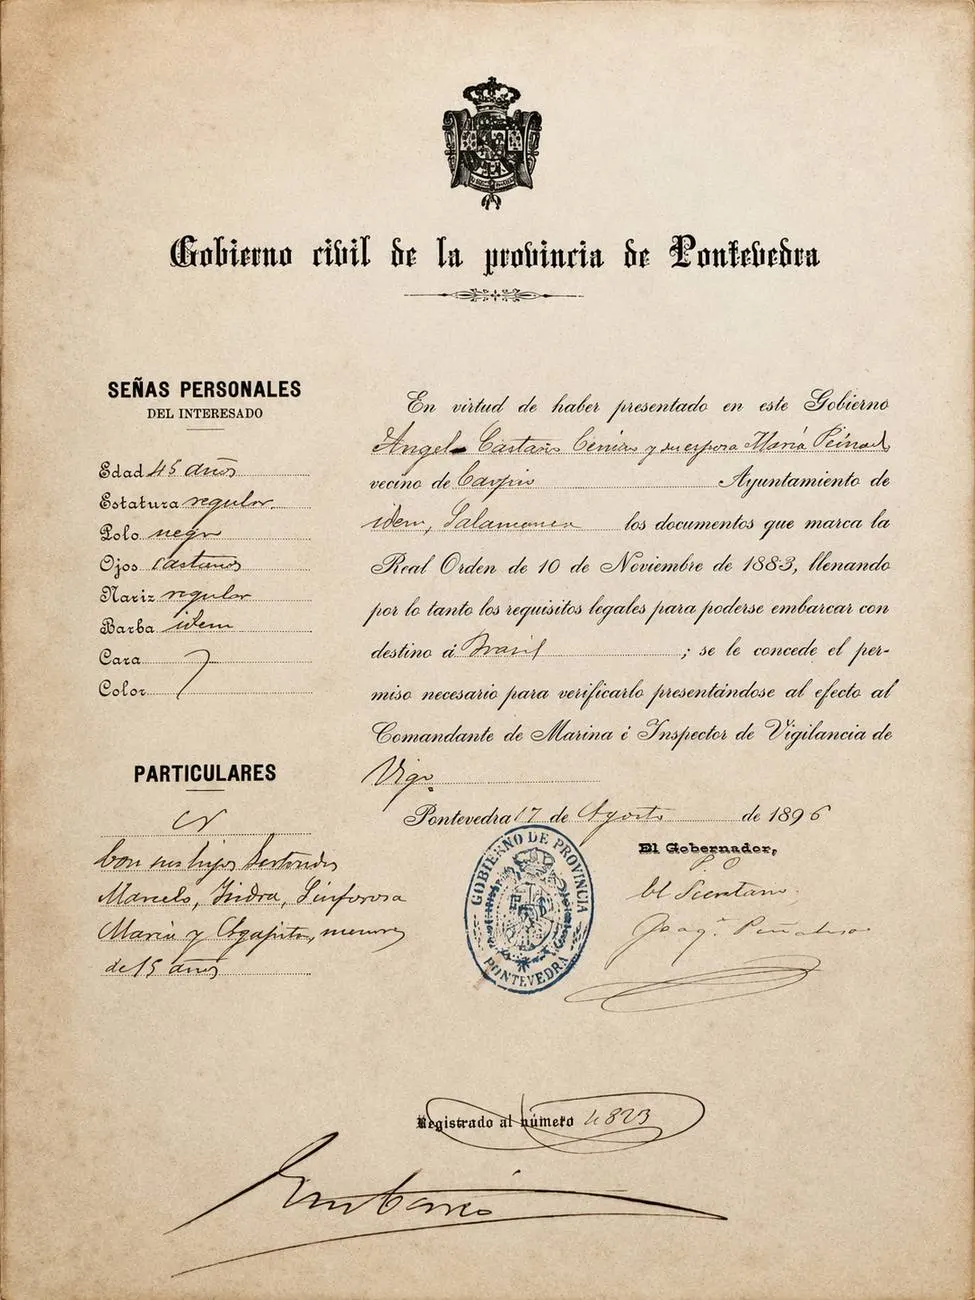 Gobierno civil de la provincia de Pontevedra
SEÑAS PERSONALES
DEL INTERESADO
Edad 45 años
Estatura regular.
Pelo negro
Ojos castaños
Nariz regular
Barba idem
Cara
Color
PARTICULARES
Con sus hijos
Marcelo, Isidra, Sinforosa
María y Agapito, menores
de 15 años
En virtud de haber presentado en este Gobierno
Angel Castaño y su esposa María
vecino de Ayuntamiento de
idem, Salamanca los documentos que marca la
Real Orden de 10 de Noviembre de 1883, llenando
por lo tanto los requisitos legales para poderse embarcar con
destino á Brasil ; se le concede el per-
miso necesario para verificarlo presentándose al efecto al
Comandante de Marina é Inspector de Vigilancia de
Vigo
Pontevedra 17 de Agosto de 1896
El Gobernador,
P. O
El Secretario
Joaq.n
GOBIERNO DE PROVINCIA
PONTEVEDRA
Registrado al número 4823